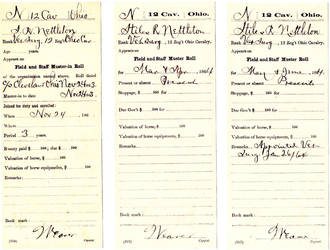 N 12 Cav. Ohio.
S. R. Nettleton
Appears on
Field and Staff Muster-in Roll
of the organization named above. Roll dated
Cleveland Ohio Nov 24/63
Muster-in to date Nov 24/63
Joined for duty and enrolled:
When Nov 24, 186
Where
Period 3 years.
Bounty paid $ 100; due $ 100
Valuation of horse, $ 100
Valuation of horse equipments, $ 100
Remarks:
Book mark:
Weaver
Copyist.
N 12 Cav. Ohio.
Stiles R Nettleton
Vet. Surg., 12 Reg't Ohio Cavalry.
Appears on
Field and Staff Muster Roll
for Mar & Apr, 1864.
Present or absent Present
Stoppage, $ 100 for
Due Gov't $ 100 for
Valuation of horse, $ 100
Valuation of horse equipments, $ 100
Remarks:
Book mark:
Weaver
Copyist.
N 12 Cav. Ohio.
Stiles R Nettleton
Vet Surg, 12 Reg't Ohio Cavalry.
Appears on
Field and Staff Muster Roll
for May & June, 1864.
Present or absent Present
Stoppage, $ 100 for
Due Gov't $ 100 for
Valuation of horse, $ 100
Valuation of horse equipments, $ 100
Remarks: Appointed Vet
Surg Jan 26/64
Book mark:
Weaver
Copyist.